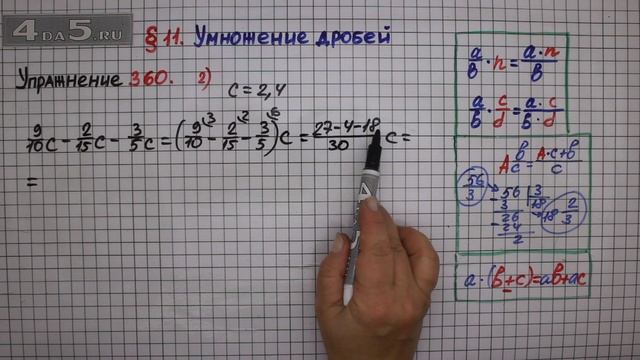 4DA5.RU
§ 11. Умножение дробей
Упражнение 360. 2)
c = 2,4
9/10 c - 2/15 c - 3/5 c = (9/10 ³ - 2/15 ² - 3/5 ⁶) c = (27-4-18)/30 c =
=
a/b · n = (a·n)/b
a/b · c/d = (a·c)/(b·d)
A b/c = (A·c+b)/c
56/3
56 | 3
- 3 | 18
26 → 18 2/3
- 24
2
a·(b+c)=ab+ac